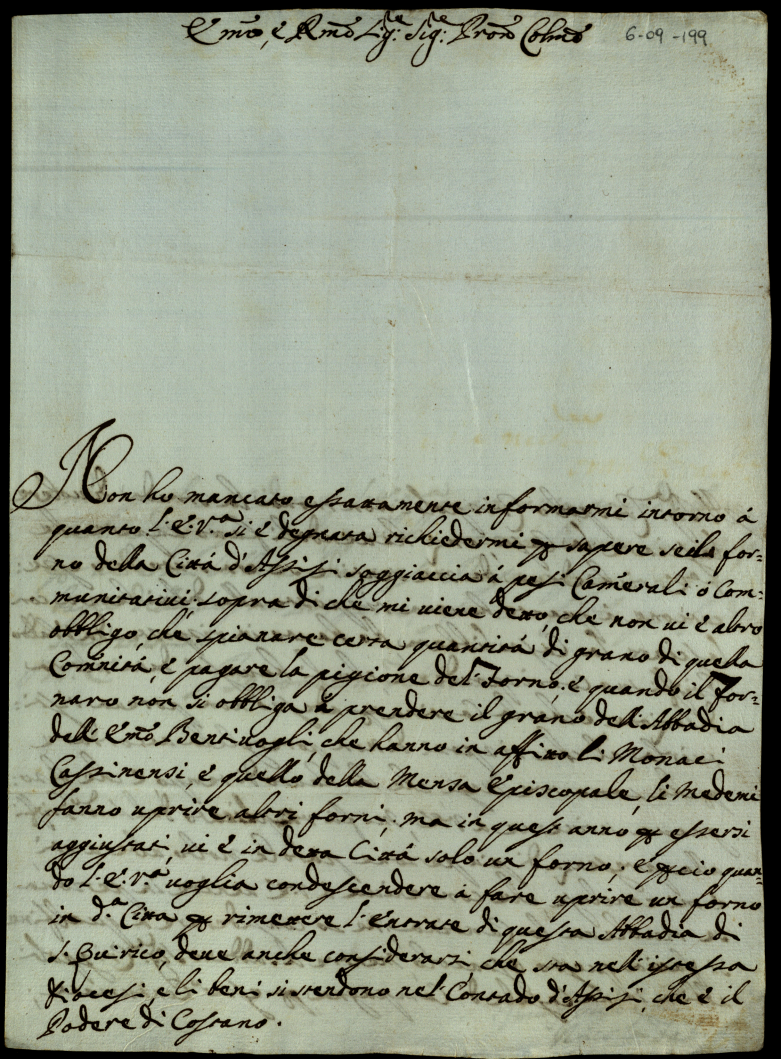 Emo, è Rmo Sig:re Sig:re Pron Colmo 6-09-199
Non ho mancato essattamente informarmi intorno à
quanto l'E:V:ra si è degnata richiedermi p sapere se il for=
no della Città d'Assisi soggiaccia à pesi Camerali ò Com=
munitativi, sopra di che mi viene detto, che non vi è altro
obbligo, chè spianare certa quantità di grano di quella
Comnità, è pagare la pigione del Forno, è quando il For=
naro non si obbliga à prendere il grano dell'Abbadia
dell'Emo Bentivogli, che hanno in affitto li Monaci
Cassinensi, è quello della Mensa Episcopale, li Medemi
fanno uprire altri forni, ma in quest'anno p essersi
aggiustati vi è in detta Città solo un forno; è pciò quan=
do l'E:V:ra voglia condescendere à fare uprire un forno
in d.a Città p rimettere l'entrate di questa Abbadia di
S. Quirico, deve anche considerarsi, che sta nell'istessa
Diocesi, è li beni si stendono nel Contado d'Assisi, che è il
Podere di Costano.